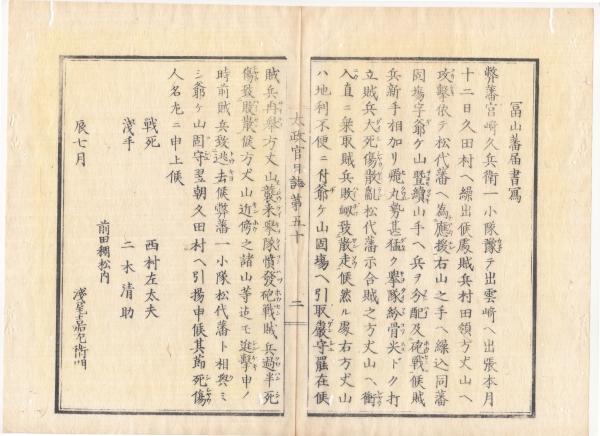 冨山藩届書寫
弊藩宮崎久兵衛一小隊豫テ出雲崎ヘ出張本月
十二日久田村ヘ繰出候處賊兵村田領方丈山ヘ
攻撃依テ松代藩ヘ為應援右山之手ヘ繰込同藩
固場字爺ケ山暨續山手ヘ兵ヲ分配及砲戰候賊
兵新手相加リ炮丸勢甚猛ク擧隊紛骨尖ドク打
立賊兵大死傷散亂松代藩示合賊之方丈山ヘ衝
入直ニ乗取賊兵敗衂致散走候然ル處右方丈山
ハ地利不便ニ付爺ケ山固場ヘ引取嚴守罷在候
太政官日誌第五十
二
賊兵再擧方丈山襲来擧隊憤發砲戰賊兵過半死
傷致敗散候方丈山近傍之諸山等迄モ進擊申ノ
時前賊兵致逃去候弊藩一小隊松代藩ト相與ミ
シ爺ケ山固守翌朝久田村ヘ引揚申候其節死傷
人名左ニ申上候
戰死 西村左太夫
淺手 二木清助
辰七月
前田稠松内
淺尾嘉左衛門